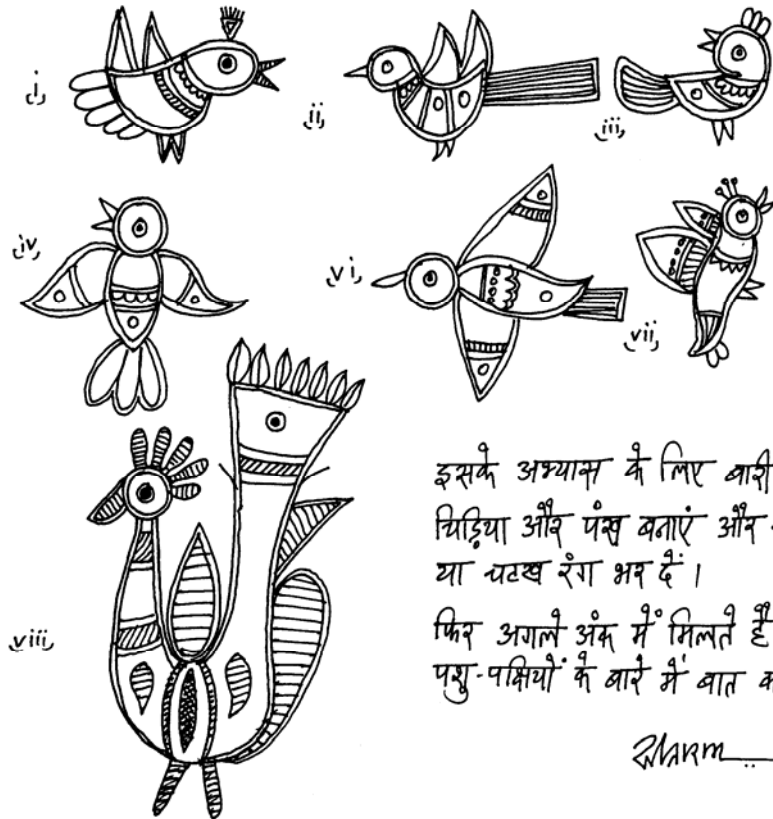 i
ii
iii
iv
vi
vii
viii
इसके अभ्यास के लिए बारी
चिड़िया और पंख बनाएं और
या चटख रंग भर दें।
फिर अगले अंक में मिलते हैं
पशु-पक्षियों के बारे में बात क